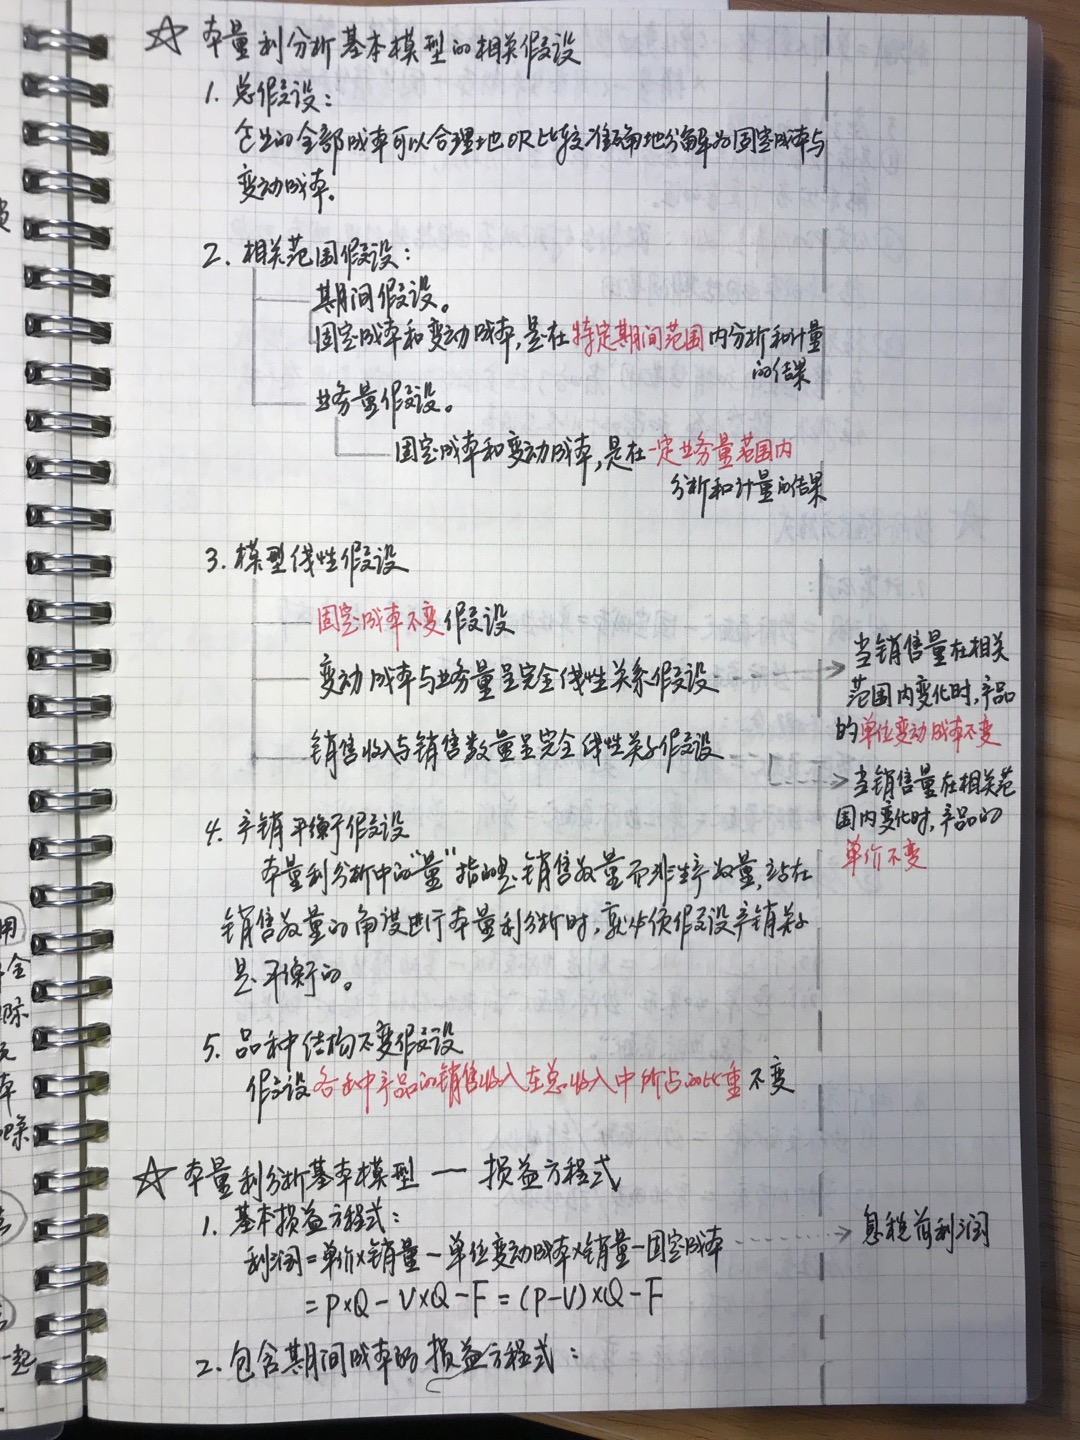 ☆ 本量利分析基本模型的相关假设
1. 总假设：
企业的全部成本可以合理地OR比较准确地分解为固定成本与
变动成本。
2. 相关范围假设：
期间假设。
固定成本和变动成本，是在特定期间范围内分析和计量
的结果
业务量假设。
固定成本和变动成本，是在一定业务量范围内
分析和计量的结果
3. 模型线性假设
固定成本不变假设
变动成本与业务量呈完全线性关系假设
当销售量在相关
范围内变化时，产品
的单位变动成本不变
销售收入与销售数量呈完全线性关系假设
当销售量在相关范
围内变化时，产品的
单价不变
4. 产销平衡假设
本量利分析中的“量”指的是销售数量而非生产数量，站在
销售数量的角度进行本量利分析时，就必须假设产销关系
是平衡的。
5. 品种结构不变假设
假设各种产品的销售收入在总收入中所占的比重不变
☆ 本量利分析基本模型 — 损益方程式
1. 基本损益方程式：
利润=单价×销量－单位变动成本×销量－固定成本
息税前利润
=P×Q－V×Q－F=(P－V)×Q－F
2. 包含期间成本的损益方程式：
用
全
际
本
一起